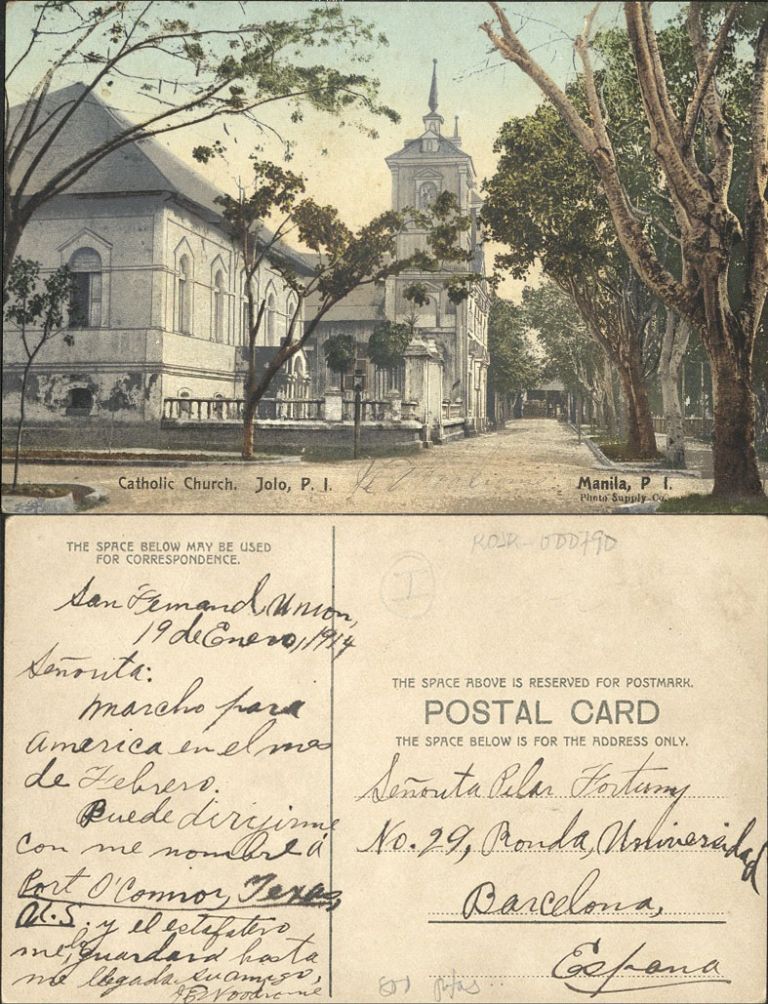 Catholic Church. Jolo, P. I.
Manila, P I.
Photo Supply Co.
THE SPACE BELOW MAY BE USED
FOR CORRESPONDENCE.
San Fernand, Union,
19 de Enero, 1914
Señorita:
Marcho para
America en el mes
de Febrero.
Puede dirijirme
con me nombre á
Port O'Connor, Texas,
U.S. y el estafetero
me lo guardara hasta
me llegada, su amigo,
THE SPACE ABOVE IS RESERVED FOR POSTMARK.
POSTAL CARD
THE SPACE BELOW IS FOR THE ADDRESS ONLY.
Señorita Pilar Fortuny
No. 29, Ronda, Universidad
Barcelona,
Espana